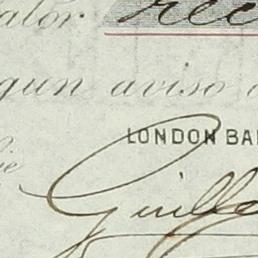 alor rec
gun aviso
LONDON BA
Guille